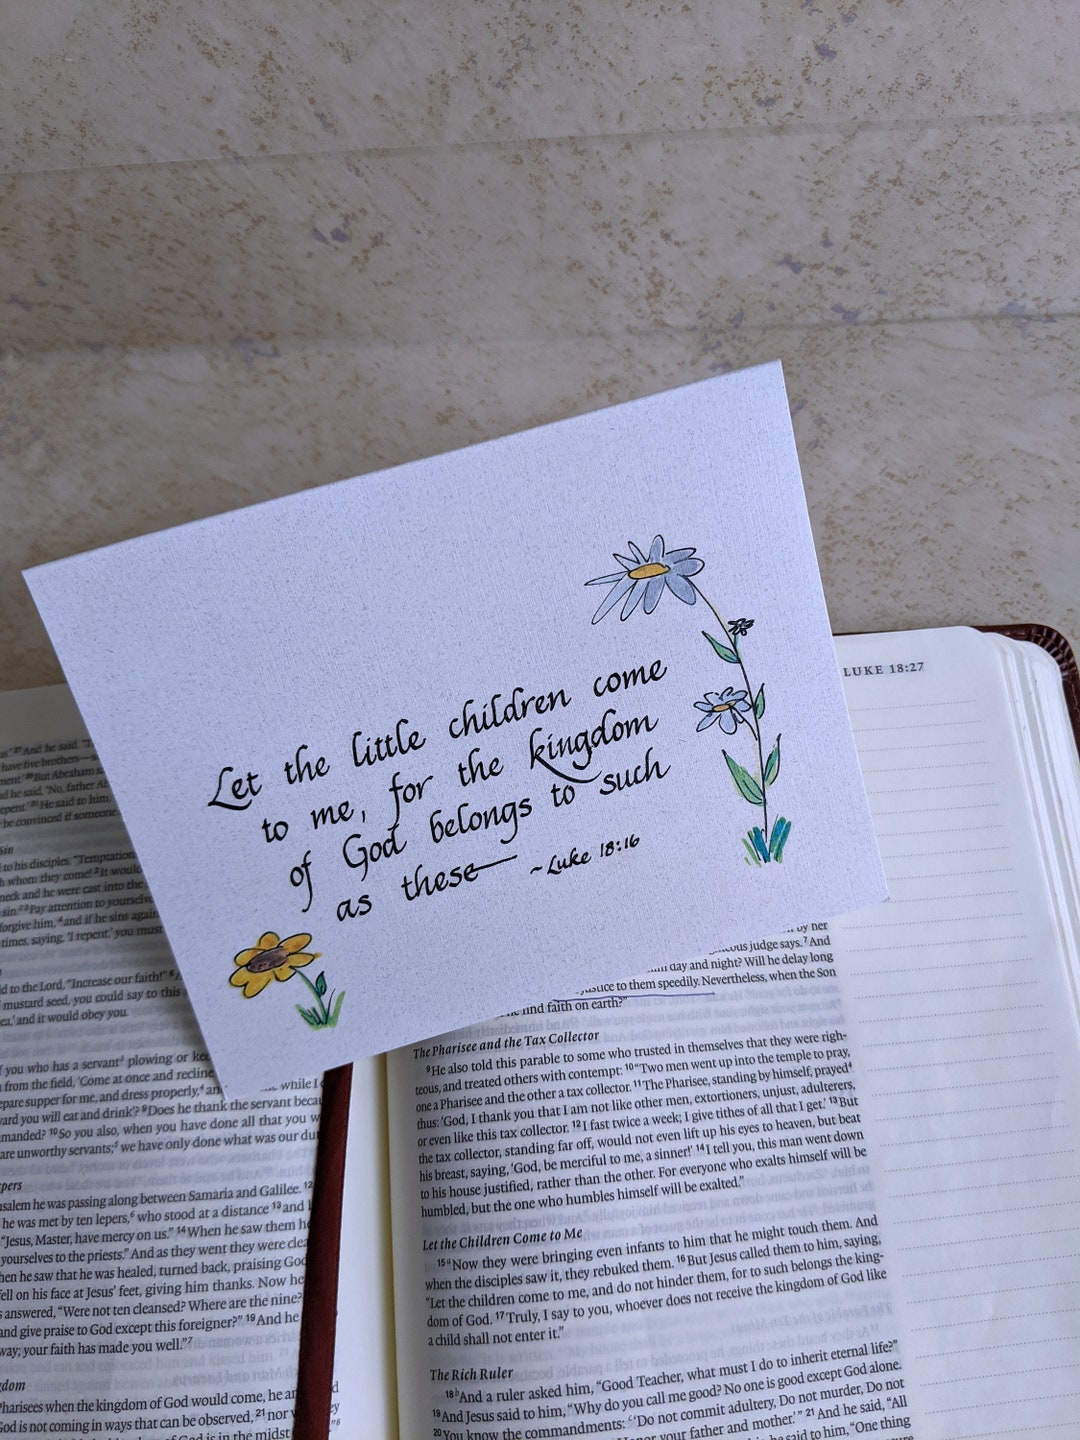 Let the little children come
to me, for the kingdom
of God belongs to such
as these
~Luke 18:16
LUKE 18:27
27And he said,
have five brothers—
26But Abraham
he said, 'No, father
30He said to him,
be convinced if someone
Sin
to his disciples, "Temptation
whom they come! 2It would
neck and he were cast into the
sin. 3Pay attention to yourselves
forgive him, 4and if he sins again
times, saying, 'I repent,' you must
to the Lord, "Increase our faith!"
mustard seed, you could say to this
and it would obey you.
you who has a servant plowing or
from the field, 'Come at once and recline
supper for me, and dress properly, while I
you will eat and drink'? 9Does he thank the servant
10So you also, when you have done all that you
are unworthy servants; we have only done what was our
he was passing along between Samaria and Galilee. 12
he was met by ten lepers, who stood at a distance 13and
"Jesus, Master, have mercy on us." 14When he saw them
yourselves to the priests." And as they went they were
he saw that he was healed, turned back, praising God
fell on his face at Jesus' feet, giving him thanks. Now he
answered, "Were not ten cleansed? Where are the nine?
and give praise to God except this foreigner?" 19And he
way; your faith has made you well."
Pharisees when the kingdom of God would come, he
God is not coming in ways that can be observed, 21nor
God is in the midst
by her
judge says. 7And
day and night? Will he delay long
justice to them speedily. Nevertheless, when the Son
find faith on earth?"
The Pharisee and the Tax Collector
9He also told this parable to some who trusted in themselves that they were right-
teous, and treated others with contempt: 10"Two men went up into the temple to pray,
one a Pharisee and the other a tax collector. 11The Pharisee, standing by himself, prayed
thus: 'God, I thank you that I am not like other men, extortioners, unjust, adulterers,
or even like this tax collector. 12I fast twice a week; I give tithes of all that I get.' 13But
the tax collector, standing far off, would not even lift up his eyes to heaven, but beat
his breast, saying, 'God, be merciful to me, a sinner!' 14I tell you, this man went down
to his house justified, rather than the other. For everyone who exalts himself will be
humbled, but the one who humbles himself will be exalted."
Let the Children Come to Me
15Now they were bringing even infants to him that he might touch them. And
when the disciples saw it, they rebuked them. 16But Jesus called them to him, saying,
"Let the children come to me, and do not hinder them, for to such belongs the king-
dom of God. 17Truly, I say to you, whoever does not receive the kingdom of God like
a child shall not enter it."
The Rich Ruler
18And a ruler asked him, "Good Teacher, what must I do to inherit eternal life?"
19And Jesus said to him, "Why do you call me good? No one is good except God alone.
20You know the commandments: 'Do not commit adultery, Do not murder, Do not
honor your father and mother.'" 21And he said, "All
he said to him, "One thing